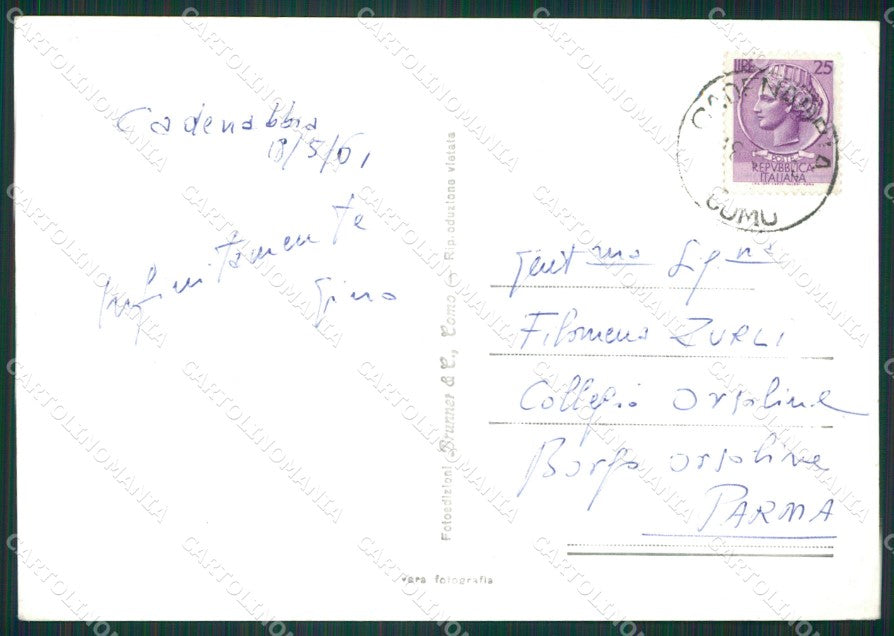 Cadenabbia
18/5/61
Infinitamente
Gino
Fotoedizioni Brunner & C., Como - Riproduzione vietata
Vera fotografia
LIRE 25
POSTE
REPVBBLICA
ITALIANA
CADENABBIA
COMO
Gent ma Sig na
Filomena ZURLI
Collegio Orsoline
Borgo Orsoline
PARMA
CARTOLINOMANIA